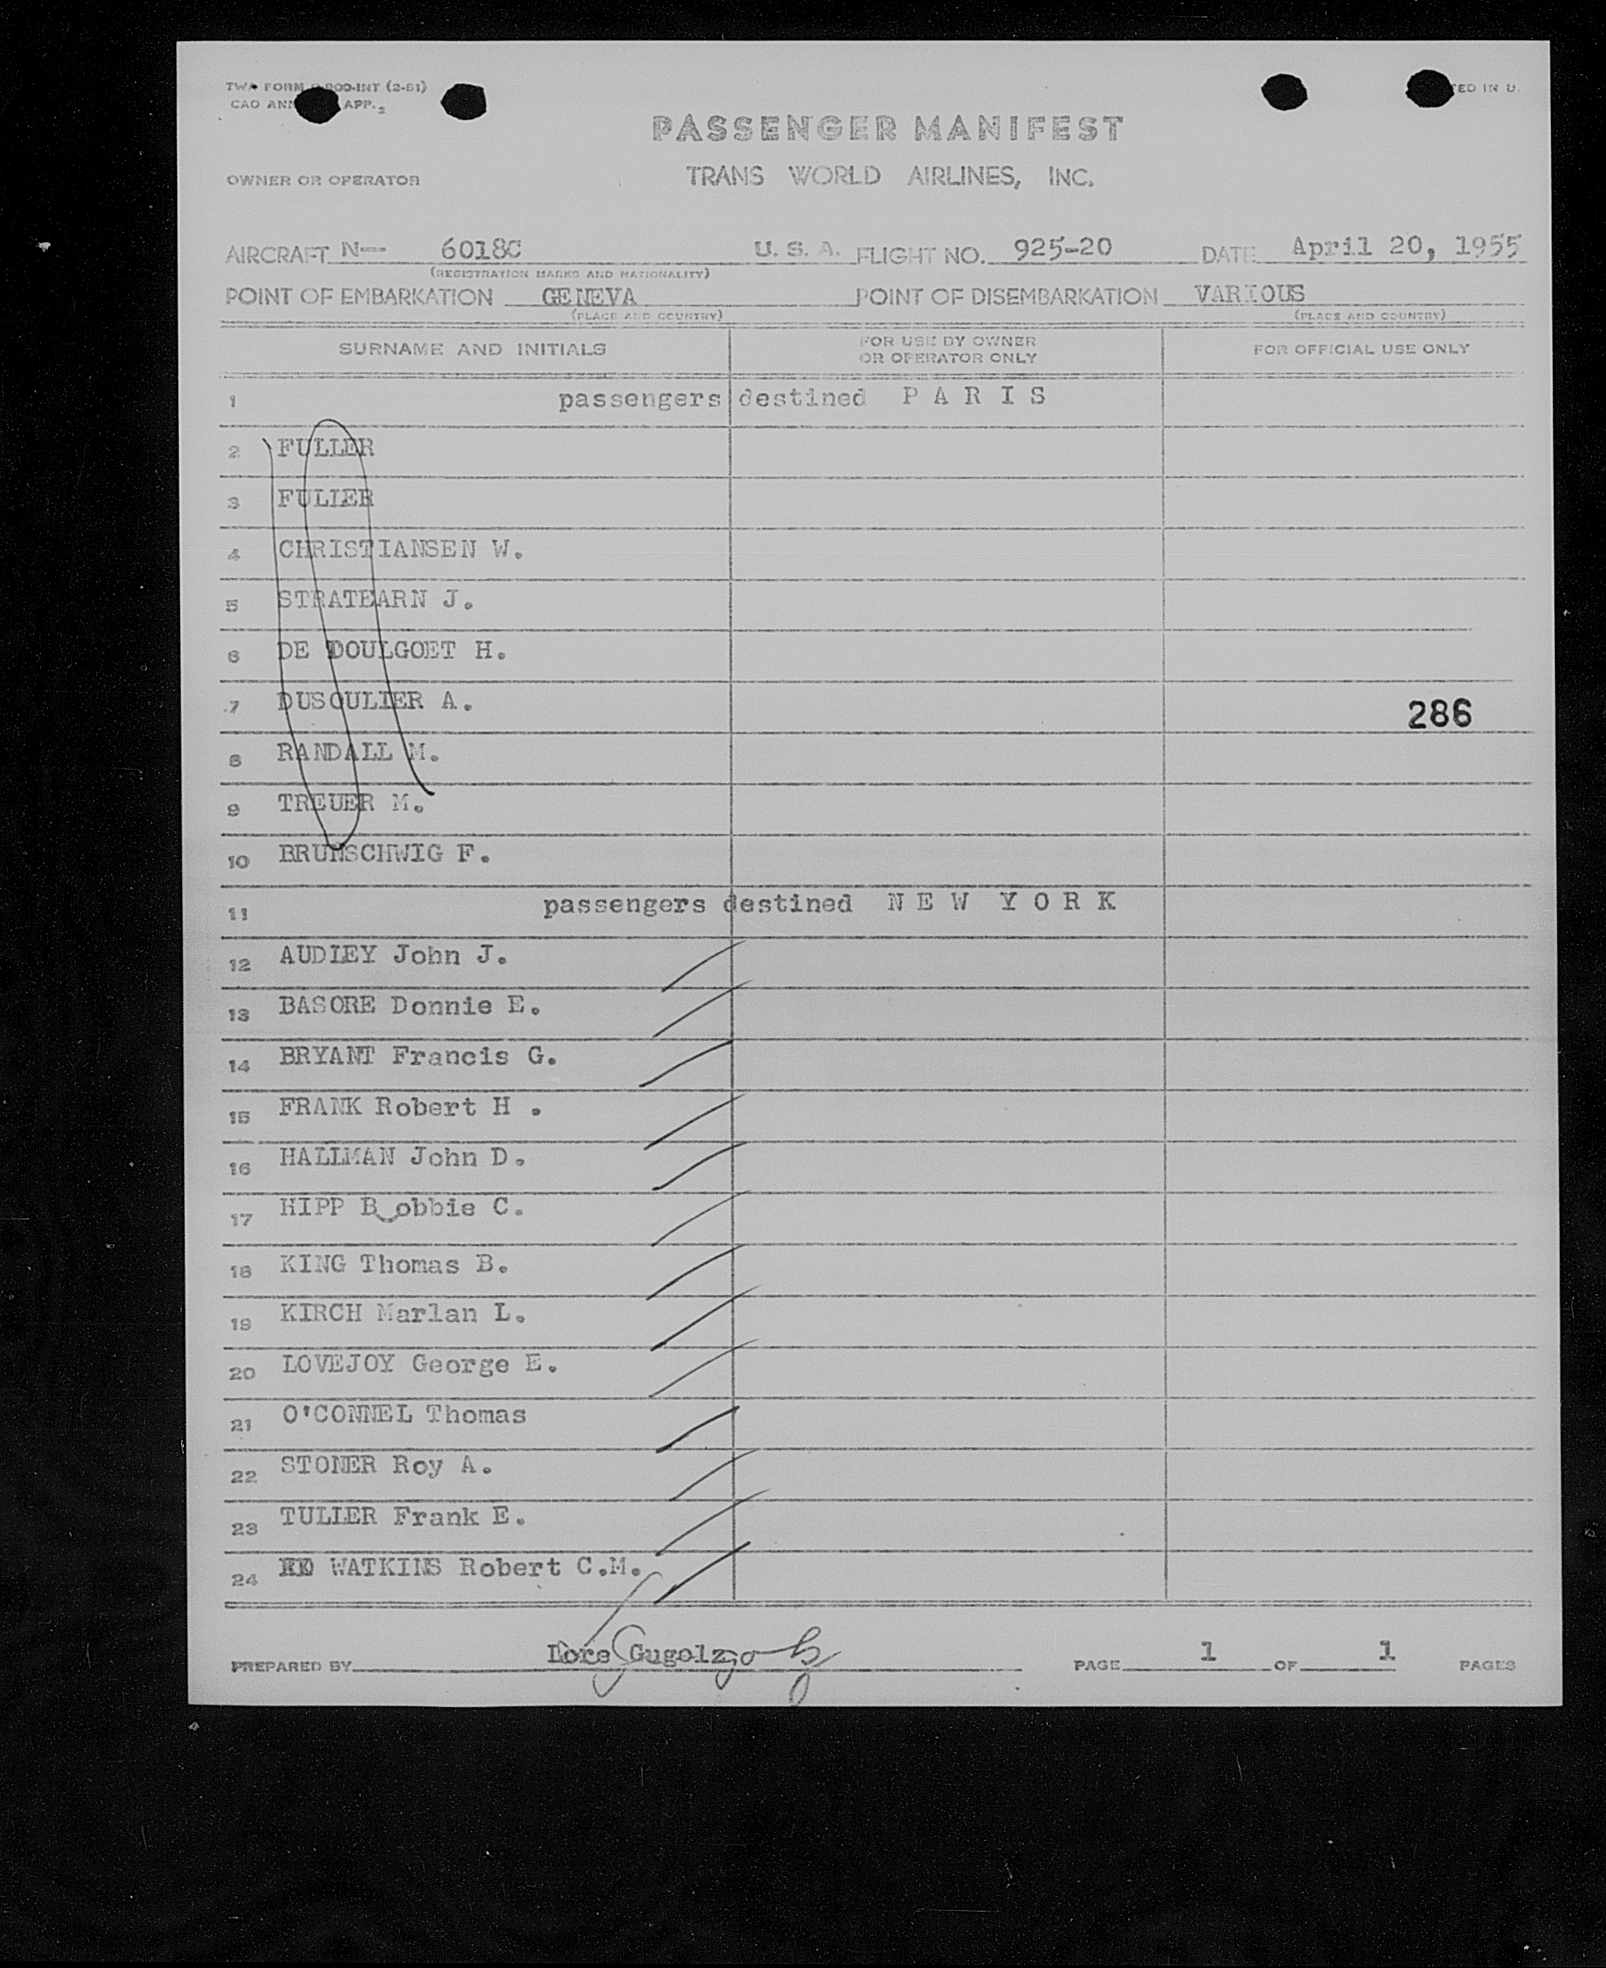 TWA FORM
CAO ANN APP.
PASSENGER MANIFEST
OWNER OR OPERATOR TRANS WORLD AIRLINES, INC.
AIRCRAFT N— 6018C U. S. A. FLIGHT NO. 925-20 DATE April 20, 1955
(REGISTRATION MARKS AND NATIONALITY)
POINT OF EMBARKATION GENEVA POINT OF DISEMBARKATION VARIOUS
(PLACE AND COUNTRY) (PLACE AND COUNTRY)
SURNAME AND INITIALS FOR USE BY OWNER OR OPERATOR ONLY FOR OFFICIAL USE ONLY
1 passengers destined P A R I S
2 FULLER
3 FULLER
4 CHRISTIANSEN W.
5 STRATEARN J.
6 DE DOULGOET H.
7 DUSOULIER A. 286
8 RANDALL M.
9 TREUER M.
10 BRUNSCHWIG F.
11 passengers destined N E W Y O R K
12 AUDLEY John J.
13 BASORE Donnie E.
14 BRYANT Francis G.
15 FRANK Robert H .
16 HALLMAN John D.
17 HIPP B obbie C.
18 KING Thomas B.
19 KIRCH Marlan L.
20 LOVEJOY George E.
21 O'CONNEL Thomas
22 STONER Roy A.
23 TULLER Frank E.
24 WATKINS Robert C.M.
PREPARED BY Lore Gugolz PAGE 1 OF 1 PAGES